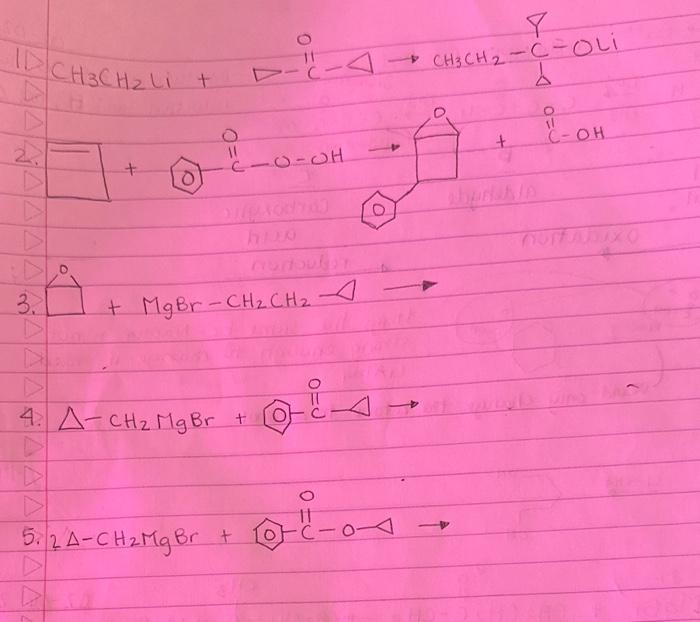 1 CH3CH2Li + O || -C- → CH3CH2 -C-OLi
2. + O || -C-O-OH → O + O || C-OH
3. O + MgBr-CH2CH2- →
4. -CH2MgBr + O || -C- →
5. 2 -CH2MgBr + O || -C-O- →